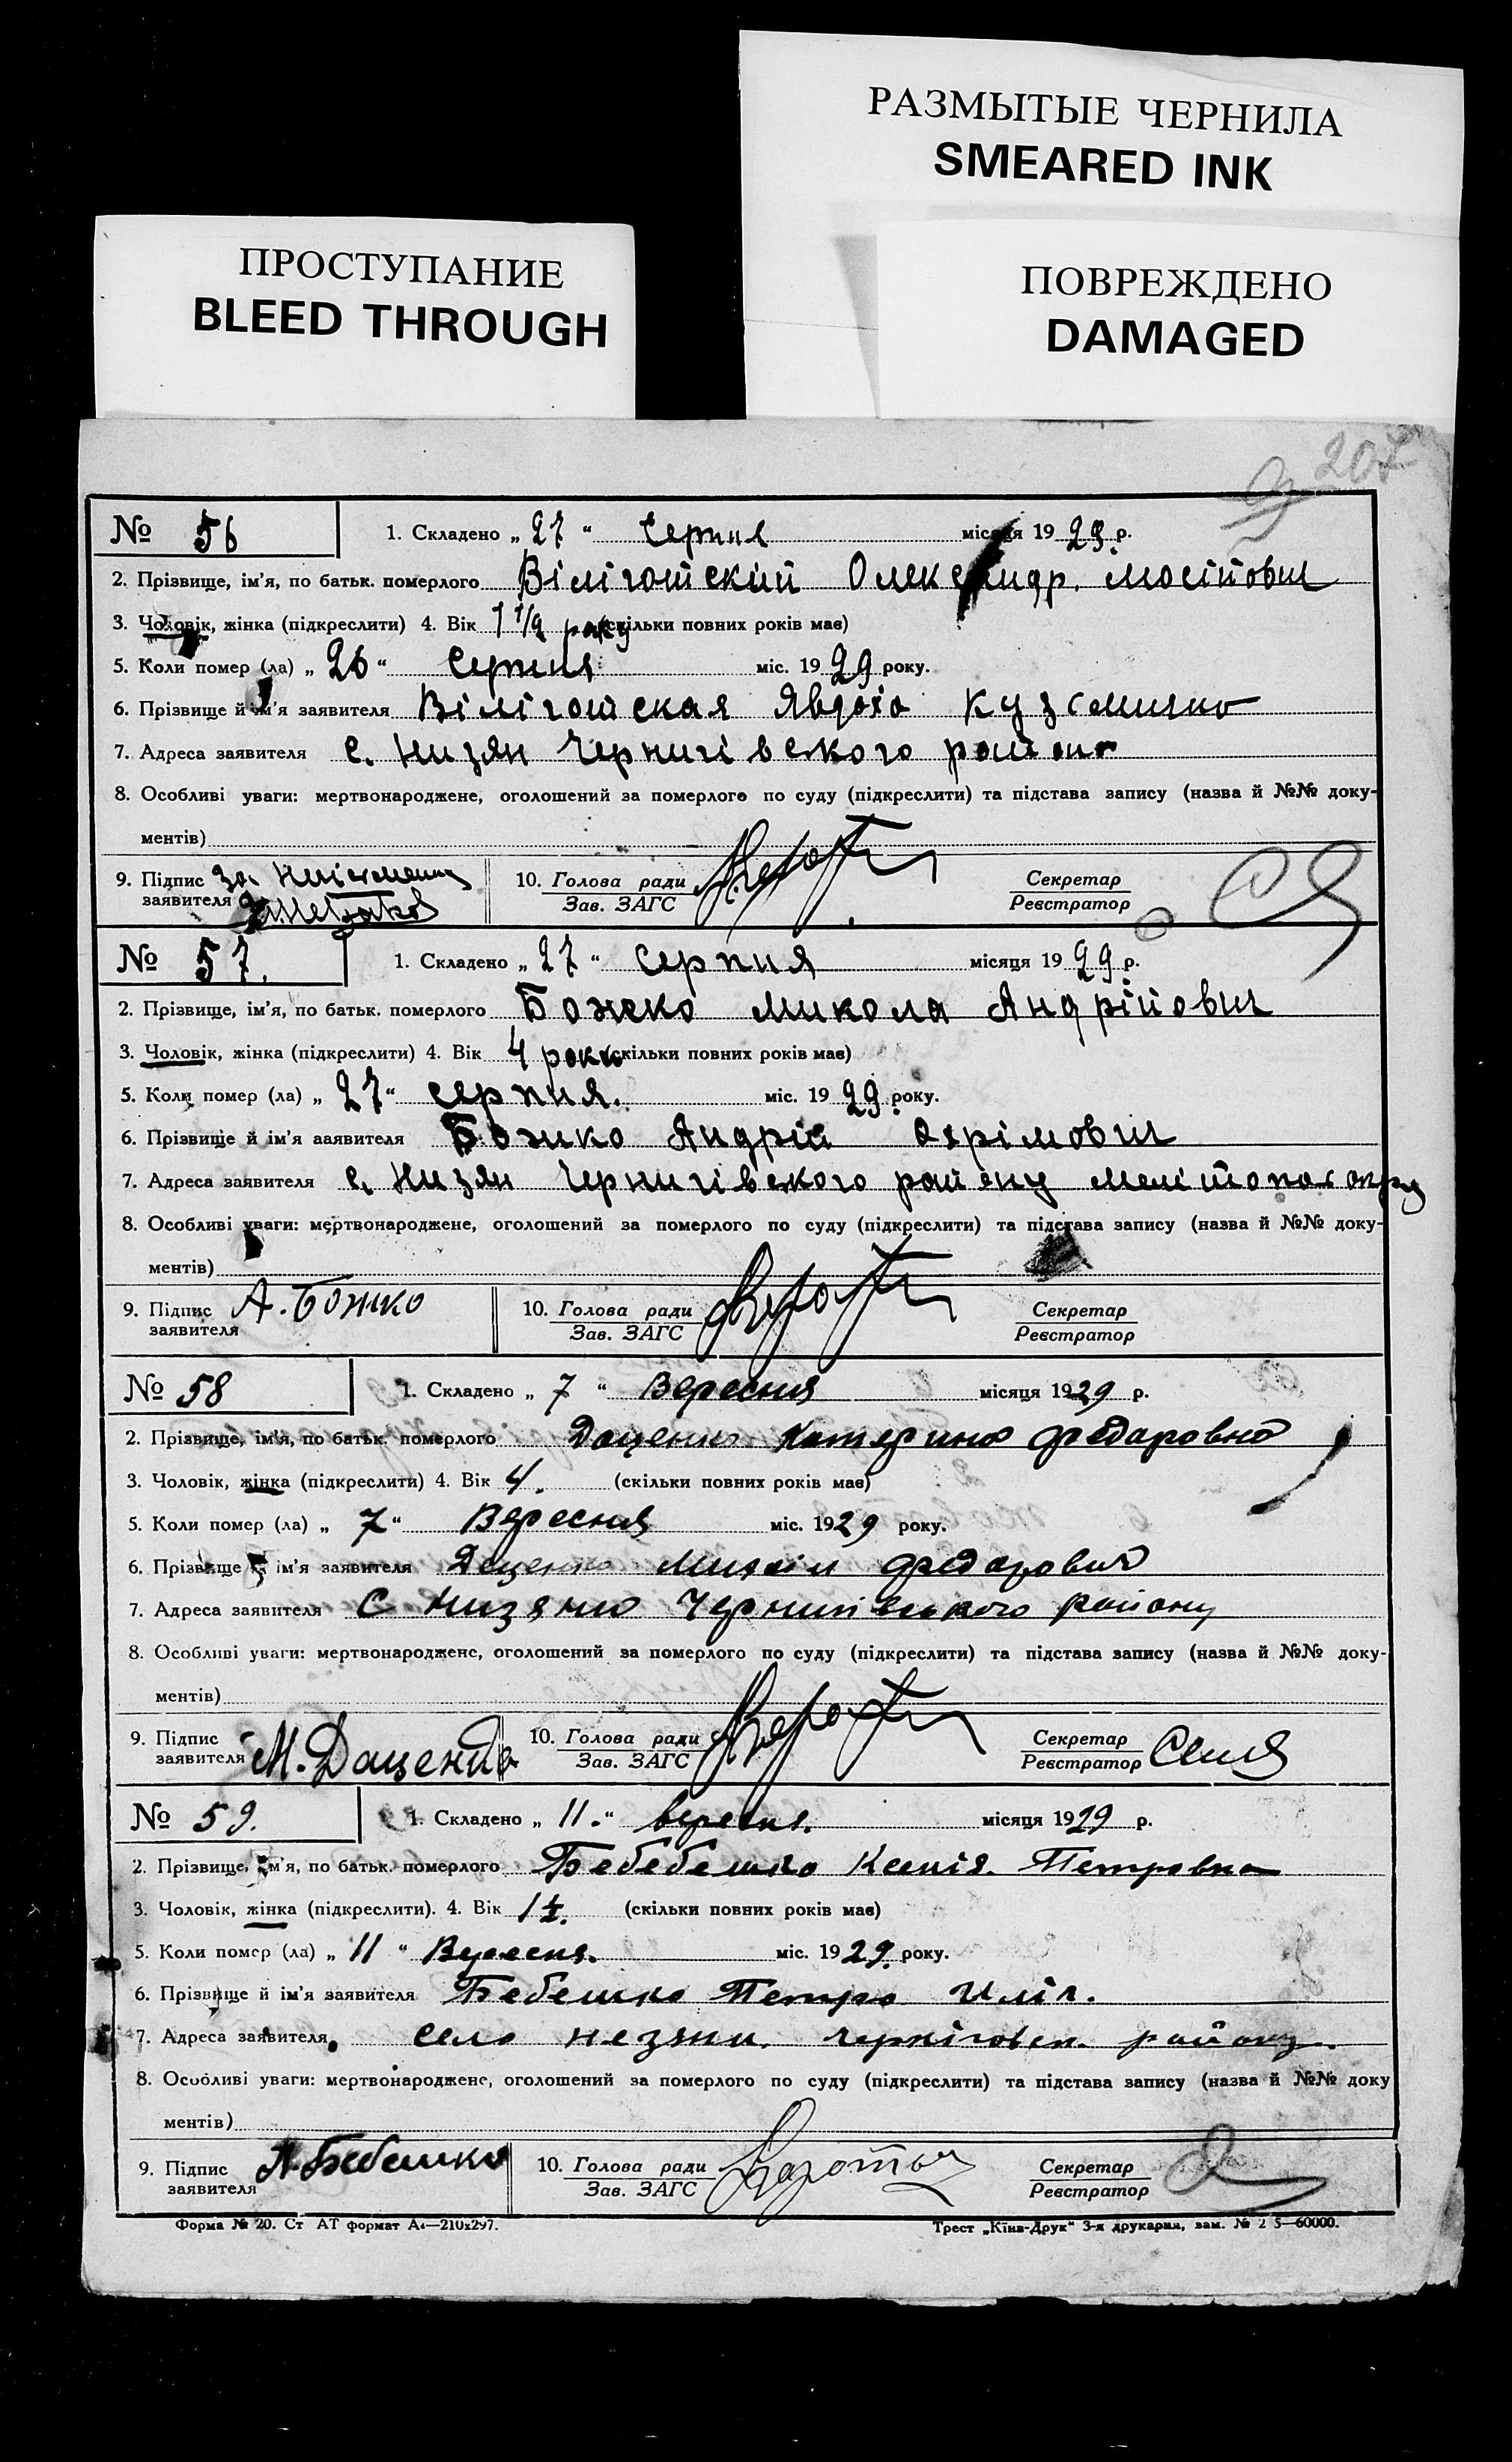 РАЗМЫТЫЕ ЧЕРНИЛА
SMEARED INK
ПРОСТУПАНИЕ
BLEED THROUGH
ПОВРЕЖДЕНО
DAMAGED
207
№ 56 1. Складено „ 27 “ Серпня місяця 19 29 р.
2. Прізвище, ім’я, по батьк. померлого Вілігошский Олександр
3. Чоловік, жінка (підкреслити) 4. Вік 1 1/2 року (скільки повних років має)
5. Коли помер (ла) „ 26 “ Серпня міс. 19 29 року.
6. Прізвище й ім’я заявителя Вілігошская Явдоха
7. Адреса заявителя с. Низян Чернигівского району
8. Особливі уваги: мертвонароджене, оголошений за померлого по суду (підкреслити) та підстава запису (назва й №№ доку-
ментів)
9. Підпис за
заявителя
10. Голова ради
Зав. ЗАГС
Секретар
Реєстратор
№ 57. 1. Складено „ 27 “ серпня місяця 19 29 р.
2. Прізвище, ім’я, по батьк. померлого Божко Микола Андрійович
3. Чоловік, жінка (підкреслити) 4. Вік 4 роки (скільки повних років має)
5. Коли помер (ла) „ 27 “ серпня. міс. 19 29 року.
6. Прізвище й ім’я заявителя Божко Андрій Охрімович
7. Адреса заявителя с. Низян Чернигівского району
8. Особливі уваги: мертвонароджене, оголошений за померлого по суду (підкреслити) та підстава запису (назва й №№ доку-
ментів)
9. Підпис А. Божко
заявителя
10. Голова ради
Зав. ЗАГС
Секретар
Реєстратор
№ 58 1. Складено „ 7 “ Вересня місяця 1929 р.
2. Прізвище, ім’я, по батьк. померлого Доценко Катерина Федаровна
3. Чоловік, жінка (підкреслити) 4. Вік 4. (скільки повних років має)
5. Коли помер (ла) „ 7 “ Вересня міс. 1929 року.
6. Прізвище й ім’я заявителя Доценко Михаіл Федарович
7. Адреса заявителя С Низяни Чернигівського району
8. Особливі уваги: мертвонароджене, оголошений за померлого по суду (підкреслити) та підстава запису (назва й №№ доку-
ментів)
9. Підпис
заявителя М. Доценко
10. Голова ради
Зав. ЗАГС
Секретар
Реєстратор
№ 59. 1. Складено „ 11. “ вересня. місяця 1929 р.
2. Прізвище, ім’я, по батьк. померлого Бебебешко Ксенія. Петровна
3. Чоловік, жінка (підкреслити). 4. Вік (скільки повних років має)
5. Коли помер (ла) „ 11 “ Вересня. міс. 1929. року.
6. Прізвище й ім’я заявителя Бебешко Петро Иліч.
7. Адреса заявителя. село незяни. черніговск. району.
8. Особливі уваги: мертвонароджене, оголошений за померлого по суду (підкреслити) та підстава запису (назва й №№ доку
ментів)
9. Підпис П. Бебешко
заявителя
10. Голова ради
Зав. ЗАГС
Секретар
Реєстратор
Форма № 20. Ст АТ формат А4—210х297.
Трест „Київ-Друк“ 3-я друкарня, зам. № 2 5—60000.